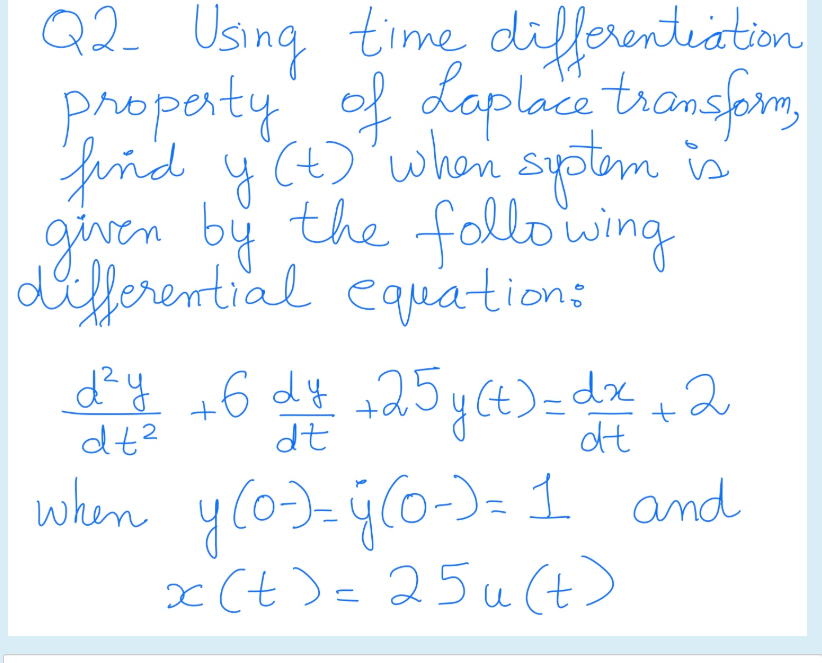 Q2- Using time differentiation
property of Laplace transform,
find y(t) when system is
given by the following
differential equation:
d²y/dt² + 6 dy/dt + 25y(t) = dx/dt + 2
when y(0-) = ẏ(0-) = 1 and
x(t) = 25u(t)